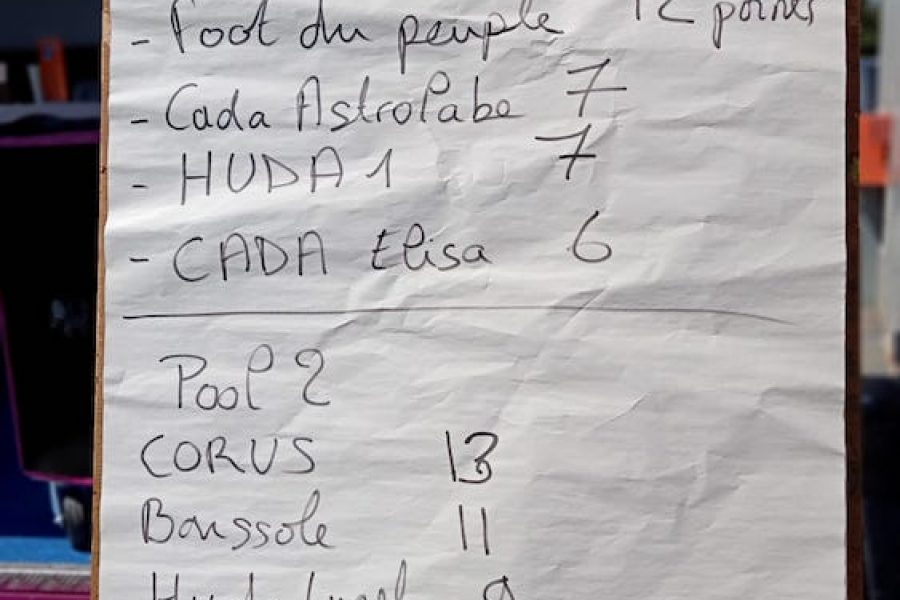 - Foot du peuple 12 points
- Cada Astrolabe 7
- HUDA 1 7
- CADA Elisa 6
Pool 2
CORUS 13
Boussole 11